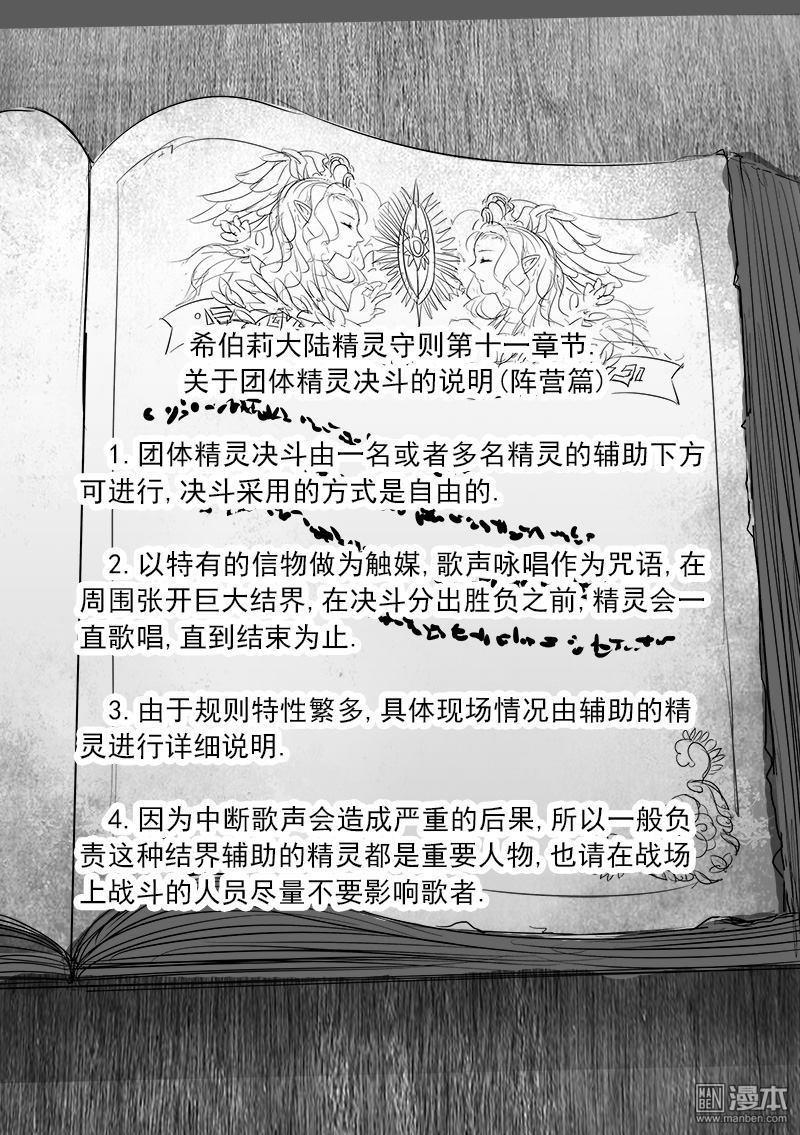 希伯莉大陆精灵守则第十一章节.
关于团体精灵决斗的说明(阵营篇)
1.团体精灵决斗由一名或者多名精灵的辅助下方
可进行,决斗采用的方式是自由的.
2.以特有的信物做为触媒,歌声咏唱作为咒语,在
周围张开巨大结界,在决斗分出胜负之前,精灵会一
直歌唱,直到结束为止.
3.由于规则特性繁多,具体现场情况由辅助的精
灵进行详细说明.
4.因为中断歌声会造成严重的后果,所以一般负
责这种结界辅助的精灵都是重要人物,也请在战场
上战斗的人员尽量不要影响歌者.
MANBEN 漫本
www.manben.com